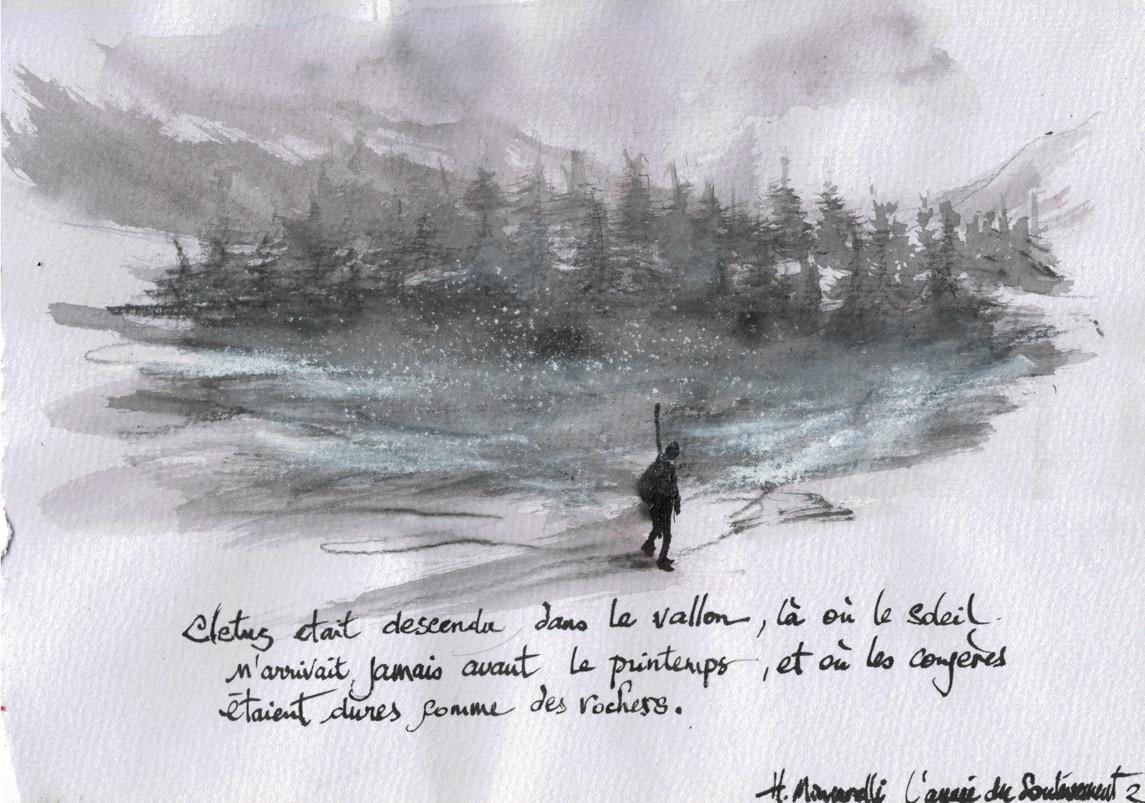 Cletus etait descendu dans le vallon, là où le soleil
n'arrivait jamais avant le printemps, et où les congères
étaient dures comme des rochers.
H. L'année du Soulèvement 2